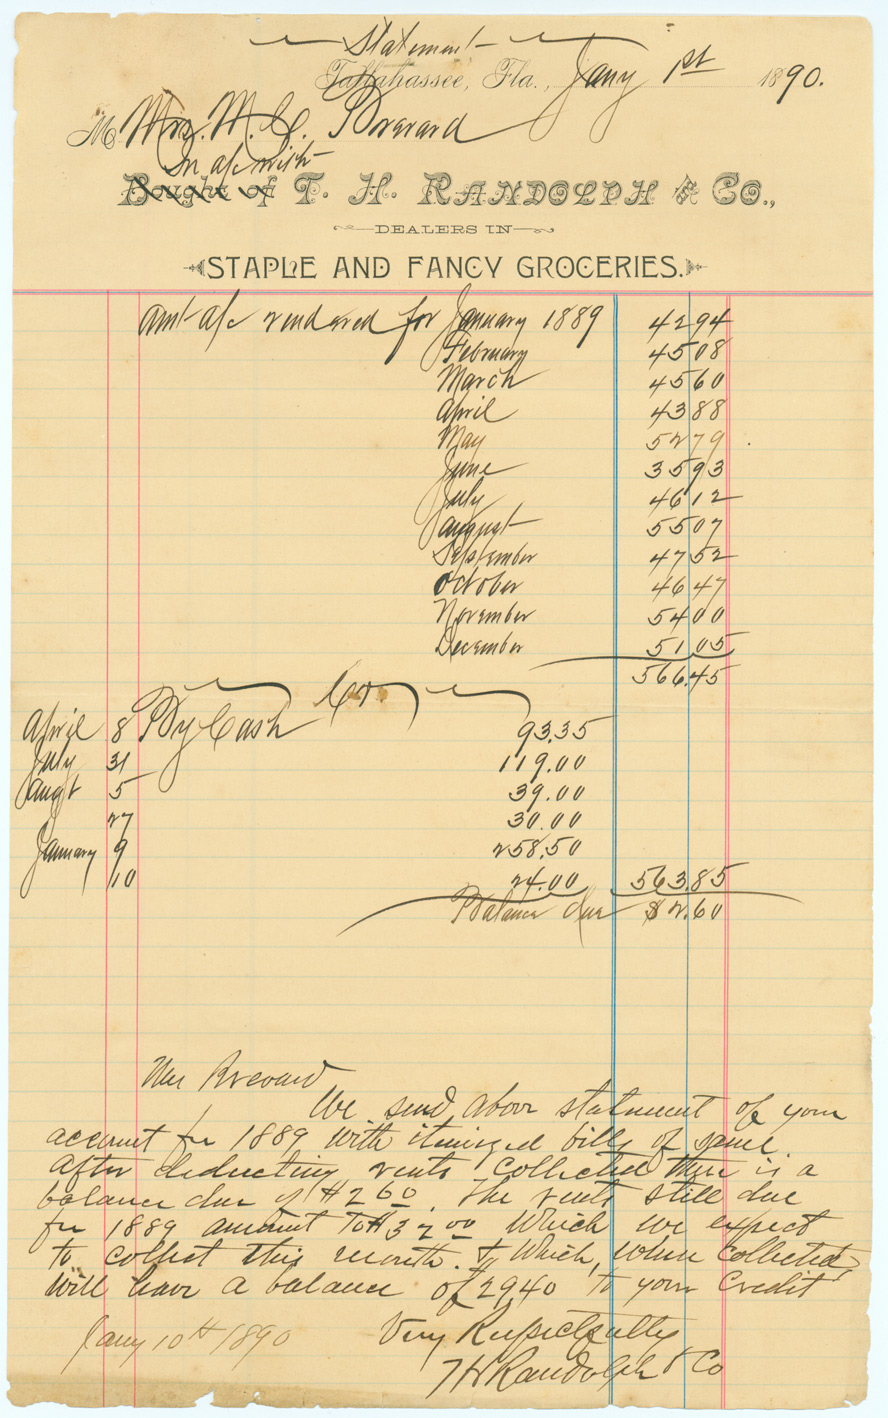 Statement
Tallahassee, Fla., Jany 1st 1890.
M Mrs. M. C. Brevard
In a/c with
Bought of T. H. RANDOLPH & CO.,
DEALERS IN
STAPLE AND FANCY GROCERIES.
Amt a/c rendered for January 1889 42 94
February 45 08
March 45 60
April 43 88
May 52 79
June 35 93
July 46 12
August 55 07
September 47 52
October 46 47
November 54 00
December 51 05
566.45
Cr.
April 8 By Cash 93.35
July 31 119.00
Augt 5 39.00
27 30.00
January 9 258.50
10 24.00 563.85
Balance due $2.60
Mrs Brevard
We send above statement of your
account for 1889 with itemized bills of same
After deducting rents collected there is a
balance due of $2 60. The rents still due
for 1889 amount to $32 00 which we expect
to collect this month. & which, when collected,
will leave a balance of 29,40 to your credit
Very Respectfully
Jany 10th 1890
T H Randolph & Co